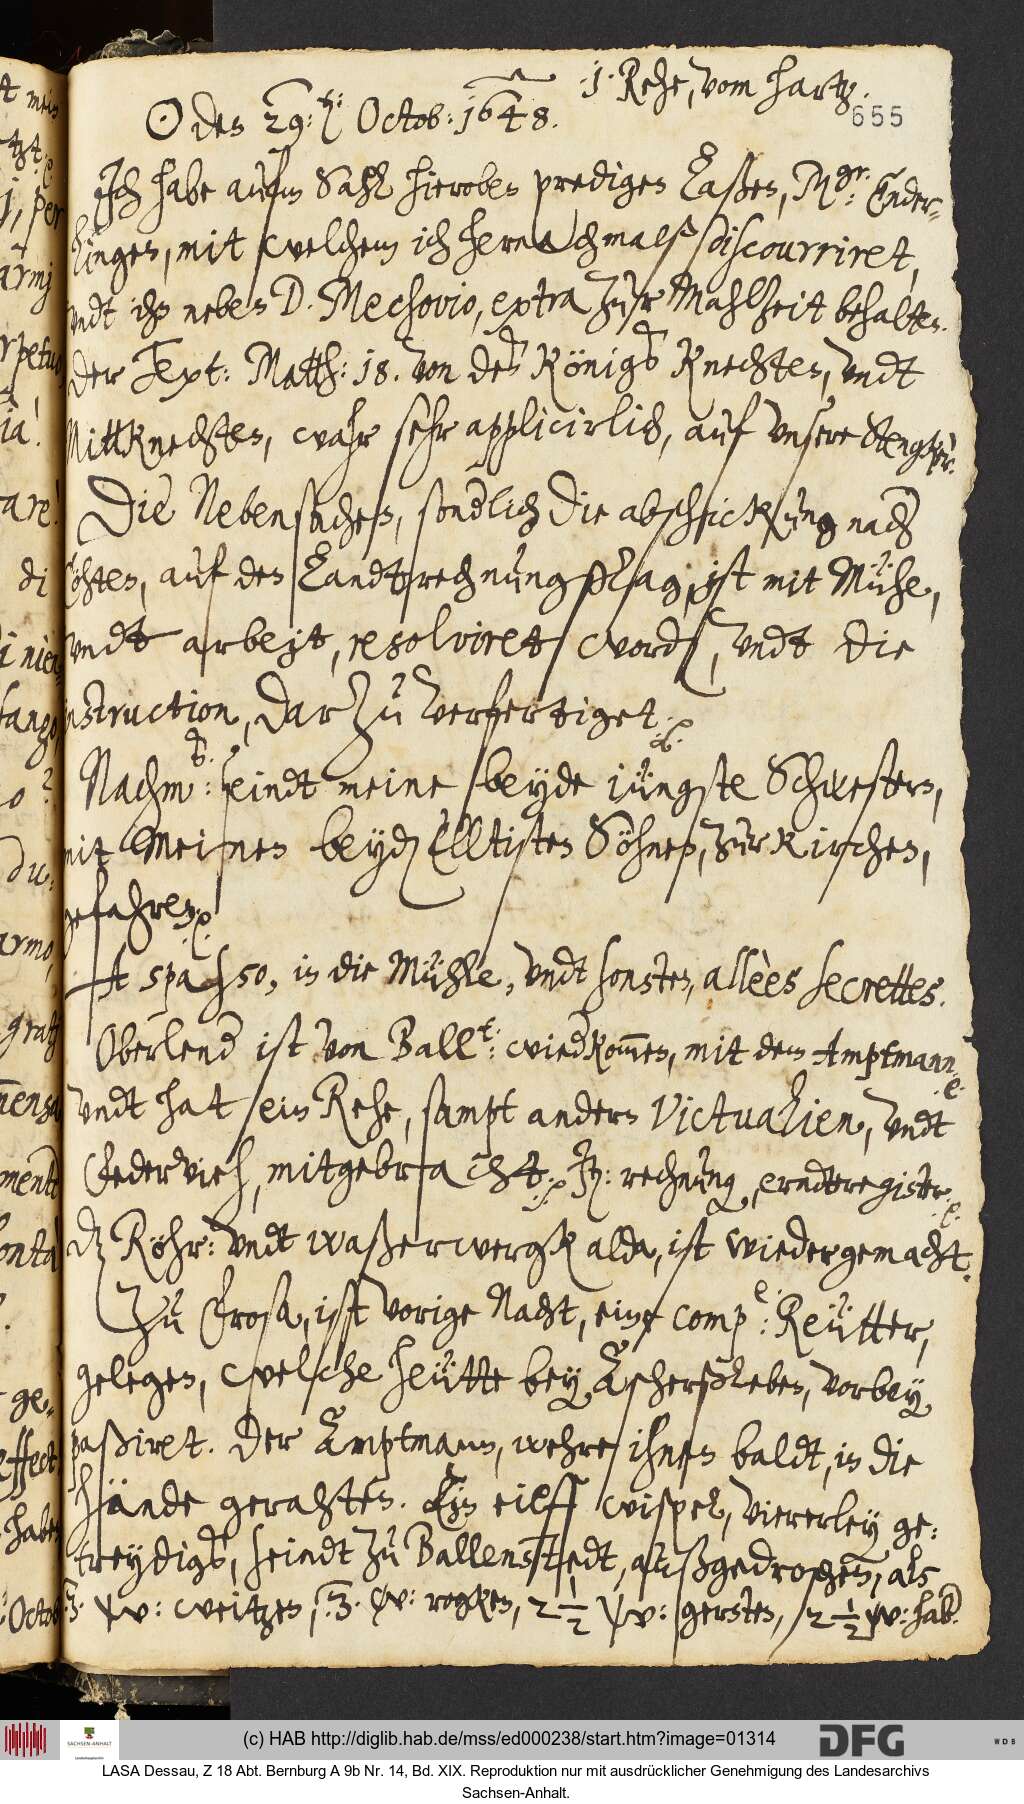 1. Rehe, vom hartz.
655
☉ den 29: t: Octob: 1648.
Jch habe aufm Sahl hieroben predigen laßen, Mgr: Ender-
lingen, mit welchem ich hernachmalß discourriret,
vndt ihn neben D. Mechovio, extra zur Mahlzeit behalten.
Der Text: Matth: 18. von des Königs Knechten, vndt
MittKnechten, wahr sehr applicirlich, auf vnsere
Die Nebensachen, sonderlich die abschickung nach
Cöhten, auf den Landtrechnungßtag, ist mit Mühe,
vndt arbeit, resolviret worden, vndt die
instruction, darzu verfertiget.
Nachm: seindt meine beyde iüngste Schwestern,
mit Meinen beyden Elltisten Söhnen, zur Kirchen,
gefahren.
A spasso, in die Mühle, vndt sonsten, allèes secrettes.
Oberlender ist von Ball: wiederkommen, mit dem Amptmann
vndt hat ein Rehe, sampt andern Victualien, vndt
Federvieh, mitgebracht. It: rechnung, erndteregister.
Das Röhr: vndt waßerwergk alda, ist wiedergemacht.
Zu Frosa, ist vorige Nacht, eine comp: Reütter,
gelegen, welche heütte bey Aschersßleben, vorbey
paßiret. Der Amptmann, wehre ihnen baldt, in die
Hände gerahten. Ein eilff wispel, viererley ge-
treydigs, seindt zu Ballenstedt, außgedroschen, als
3. w: weitzen, 3. w: rogken, 2 1/2 w: gersten, 2 1/2 w: haber
(c) HAB http://diglib.hab.de/mss/ed000238/start.htm?image=01314
DFG
WDB
SACHSEN-ANHALT
LASA Dessau, Z 18 Abt. Bernburg A 9b Nr. 14, Bd. XIX. Reproduktion nur mit ausdrücklicher Genehmigung des Landesarchivs
Sachsen-Anhalt.